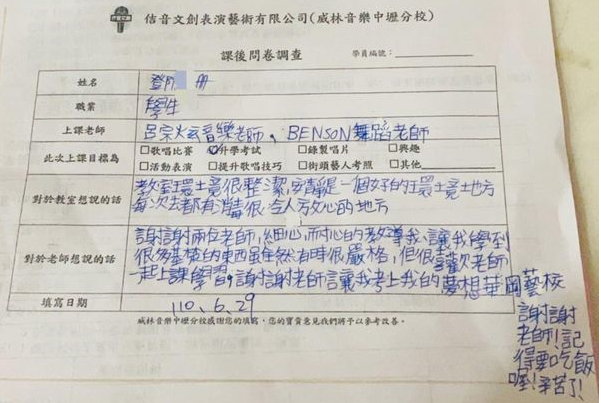 佶音文創表演藝術有限公司(威林音樂中壢分校)
課後問卷調查
學員編號：
姓名
職業 學生
上課老師 呂宗炫音樂老師、BENSON舞蹈老師
此次上課目標為 □歌唱比賽 ☑升學考試 □錄製唱片 □興趣
□活動表演 □提升歌唱技巧 □街頭藝人考照 □其他
對於教室想說的話 教室環境很整潔,安靜是一個好的環境地方
每次去都有消毒很令人方放心的地方
對於老師想說的話 謝謝兩位老師,細心,耐心的教導我讓我學到
很多基礎的東西雖然有時很嚴格,但很喜歡老師
一起上課學習。謝謝老師讓我考上我的夢想華岡藝校
謝謝
老師!記
得要吃飯
喔!辛苦了!
填寫日期 110.6.29
威林音樂中壢分校感謝您的填寫，您的寶貴意見我們將予以參考改善。